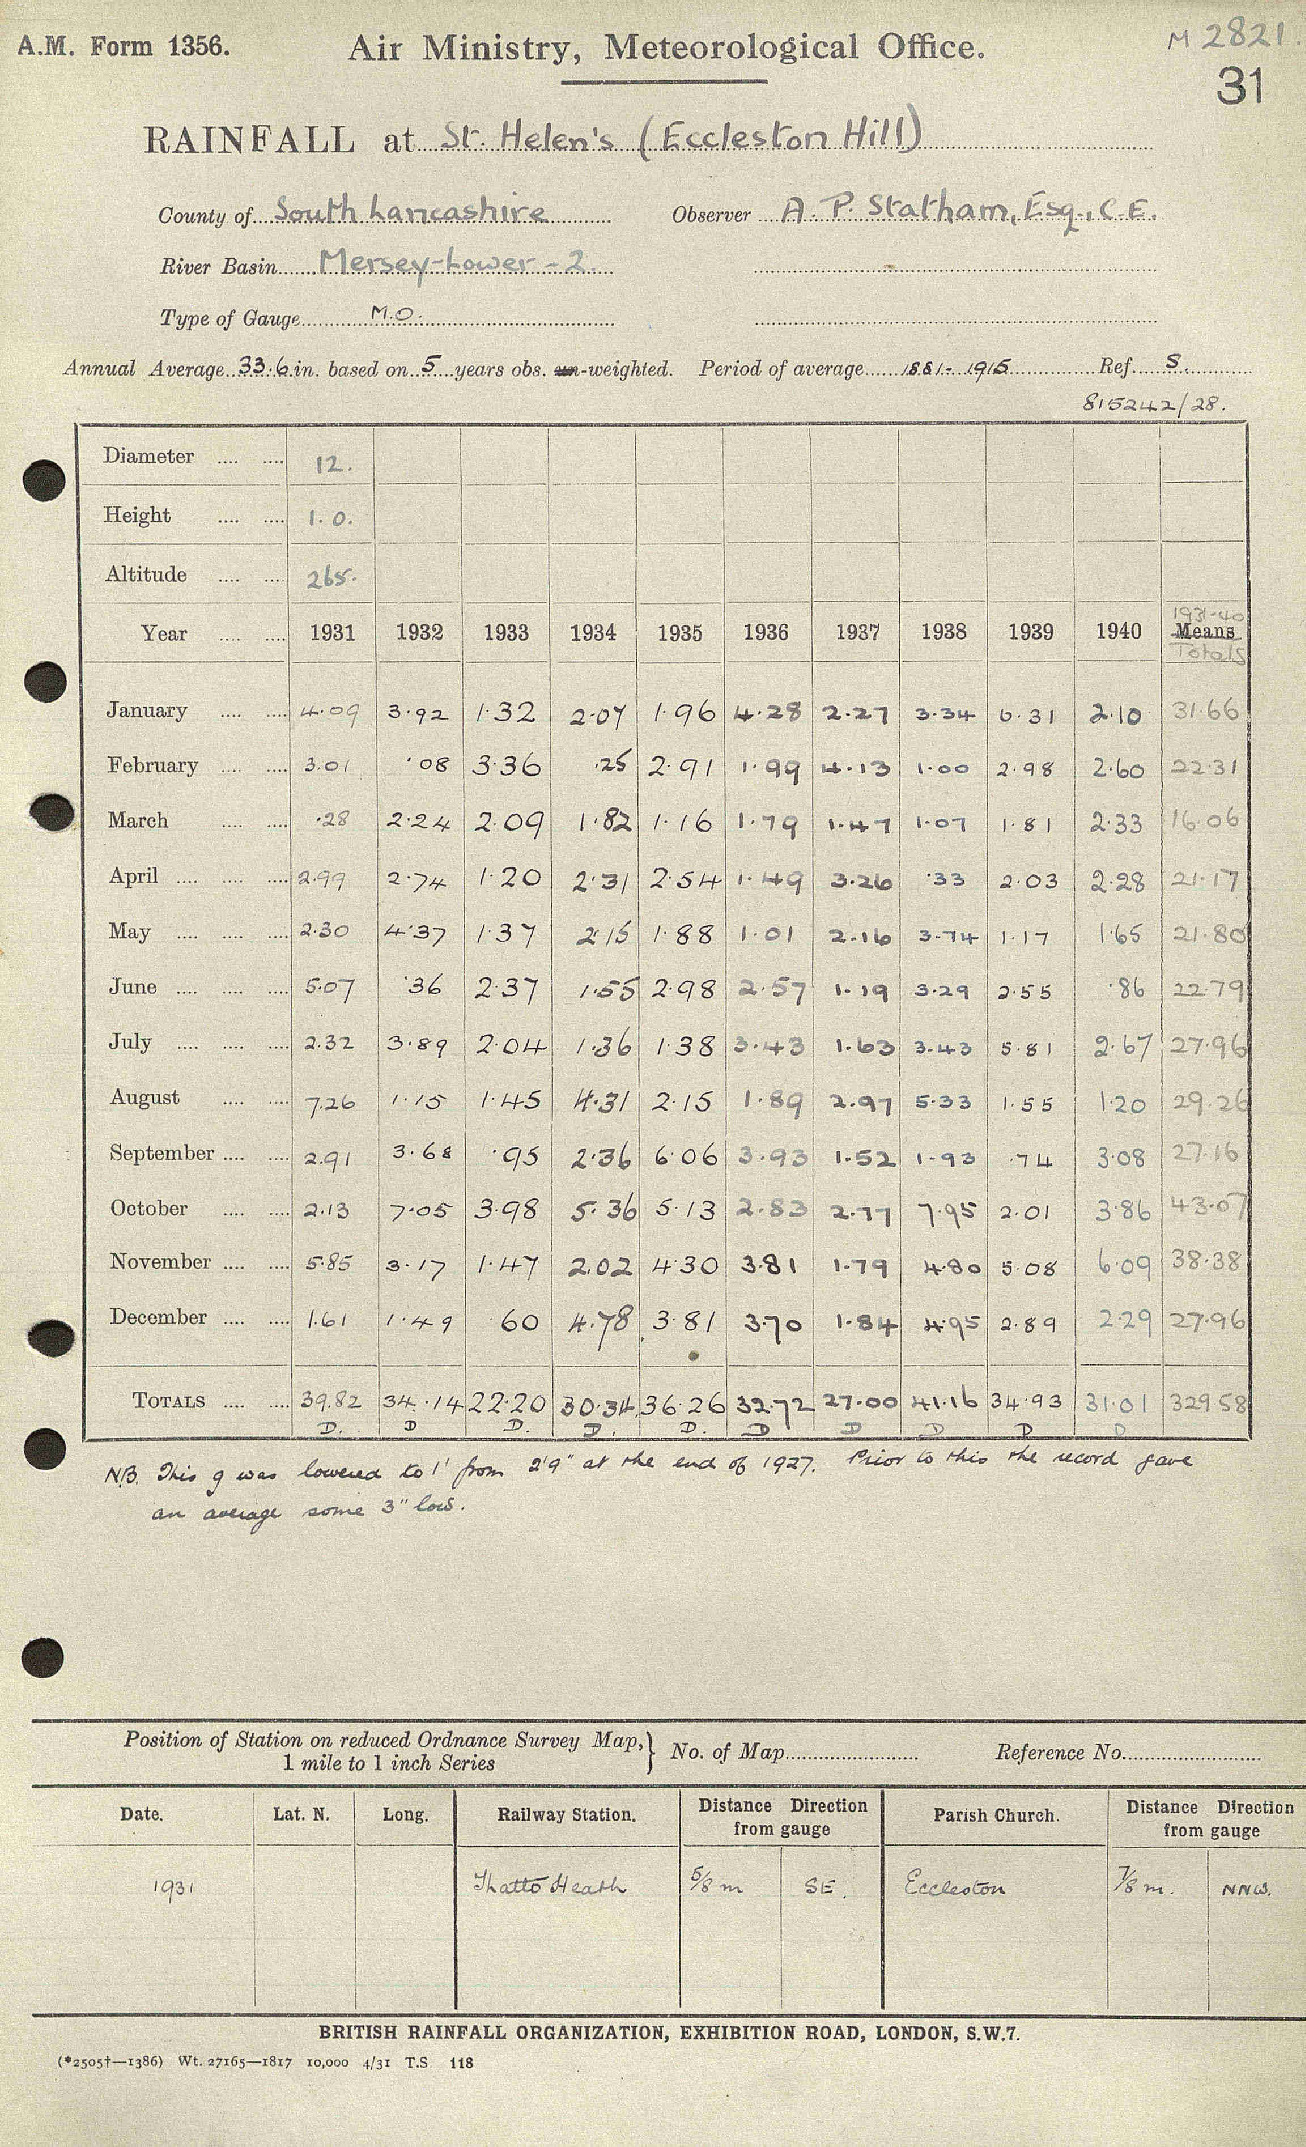 A.M. Form 1356. Air Ministry, Meteorological Office. M 2821.
31
RAINFALL at St. Helen's (Eccleston Hill)
County of South Lancashire Observer A. P. Statham, Esq., C.E.
River Basin Mersey-Lower - 2.
Type of Gauge M.O.
Annual Average 33.6 in. based on 5 years obs. un-weighted. Period of average 1881-1915 Ref. S.
815242/28.
Diameter .... .... 12.
Height .... .... 1. 0.
Altitude .... .... 265.
1931-40
Year .... .... 1931 1932 1933 1934 1935 1936 1937 1938 1939 1940 Means
Totals
January .... .... 4.09 3.92 1.32 2.07 1.96 4.28 2.27 3.34 6.31 2.10 31.66
February .... .... 3.01 .08 3.36 .25 2.91 1.99 4.13 1.00 2.98 2.60 22.31
March .... .... .28 2.24 2.09 1.82 1.16 1.79 1.47 1.07 1.81 2.33 16.06
April .... .... .... 2.99 2.74 1.20 2.31 2.54 1.49 3.26 .33 2.03 2.28 21.17
May .... .... .... 2.30 4.37 1.37 2.15 1.88 1.01 2.16 3.74 1.17 1.65 21.80
June .... .... .... 5.07 .36 2.37 1.55 2.98 2.57 1.19 3.29 2.55 .86 22.79
July .... .... .... 2.32 3.89 2.04 1.36 1.38 3.43 1.63 3.43 5.81 2.67 27.96
August .... .... 7.26 1.15 1.45 4.31 2.15 1.89 2.97 5.33 1.55 1.20 29.26
September .... .... 2.91 3.68 .95 2.36 6.06 3.93 1.52 1.93 .74 3.08 27.16
October .... .... 2.13 7.05 3.98 5.36 5.13 2.83 2.77 7.95 2.01 3.86 43.07
November .... .... 5.85 3.17 1.47 2.02 4.30 3.81 1.79 4.80 5.08 6.09 38.38
December .... .... 1.61 1.49 .60 4.78 3.81 3.70 1.84 4.95 2.89 2.29 27.96
TOTALS .... .... 39.82 34.14 22.20 30.34 36.26 32.72 27.00 41.16 34.93 31.01 329.58
D. D D. D. D. D D D D D
N.B. This g was lowered to 1' from 2'9" at the end of 1927. Prior to this the record gave
an average some 3" low.
Position of Station on reduced Ordnance Survey Map, } No. of Map Reference No.
1 mile to 1 inch Series
Date. Lat. N. Long. Railway Station. Distance Direction from gauge Parish Church. Distance Direction from gauge
1931 Thatto Heath 5/8 m SE. Eccleston 7/8 m. NNW.
BRITISH RAINFALL ORGANIZATION, EXHIBITION ROAD, LONDON, S.W.7.
(*2505†—1386) Wt. 27165—1817 10,000 4/31 T.S 118